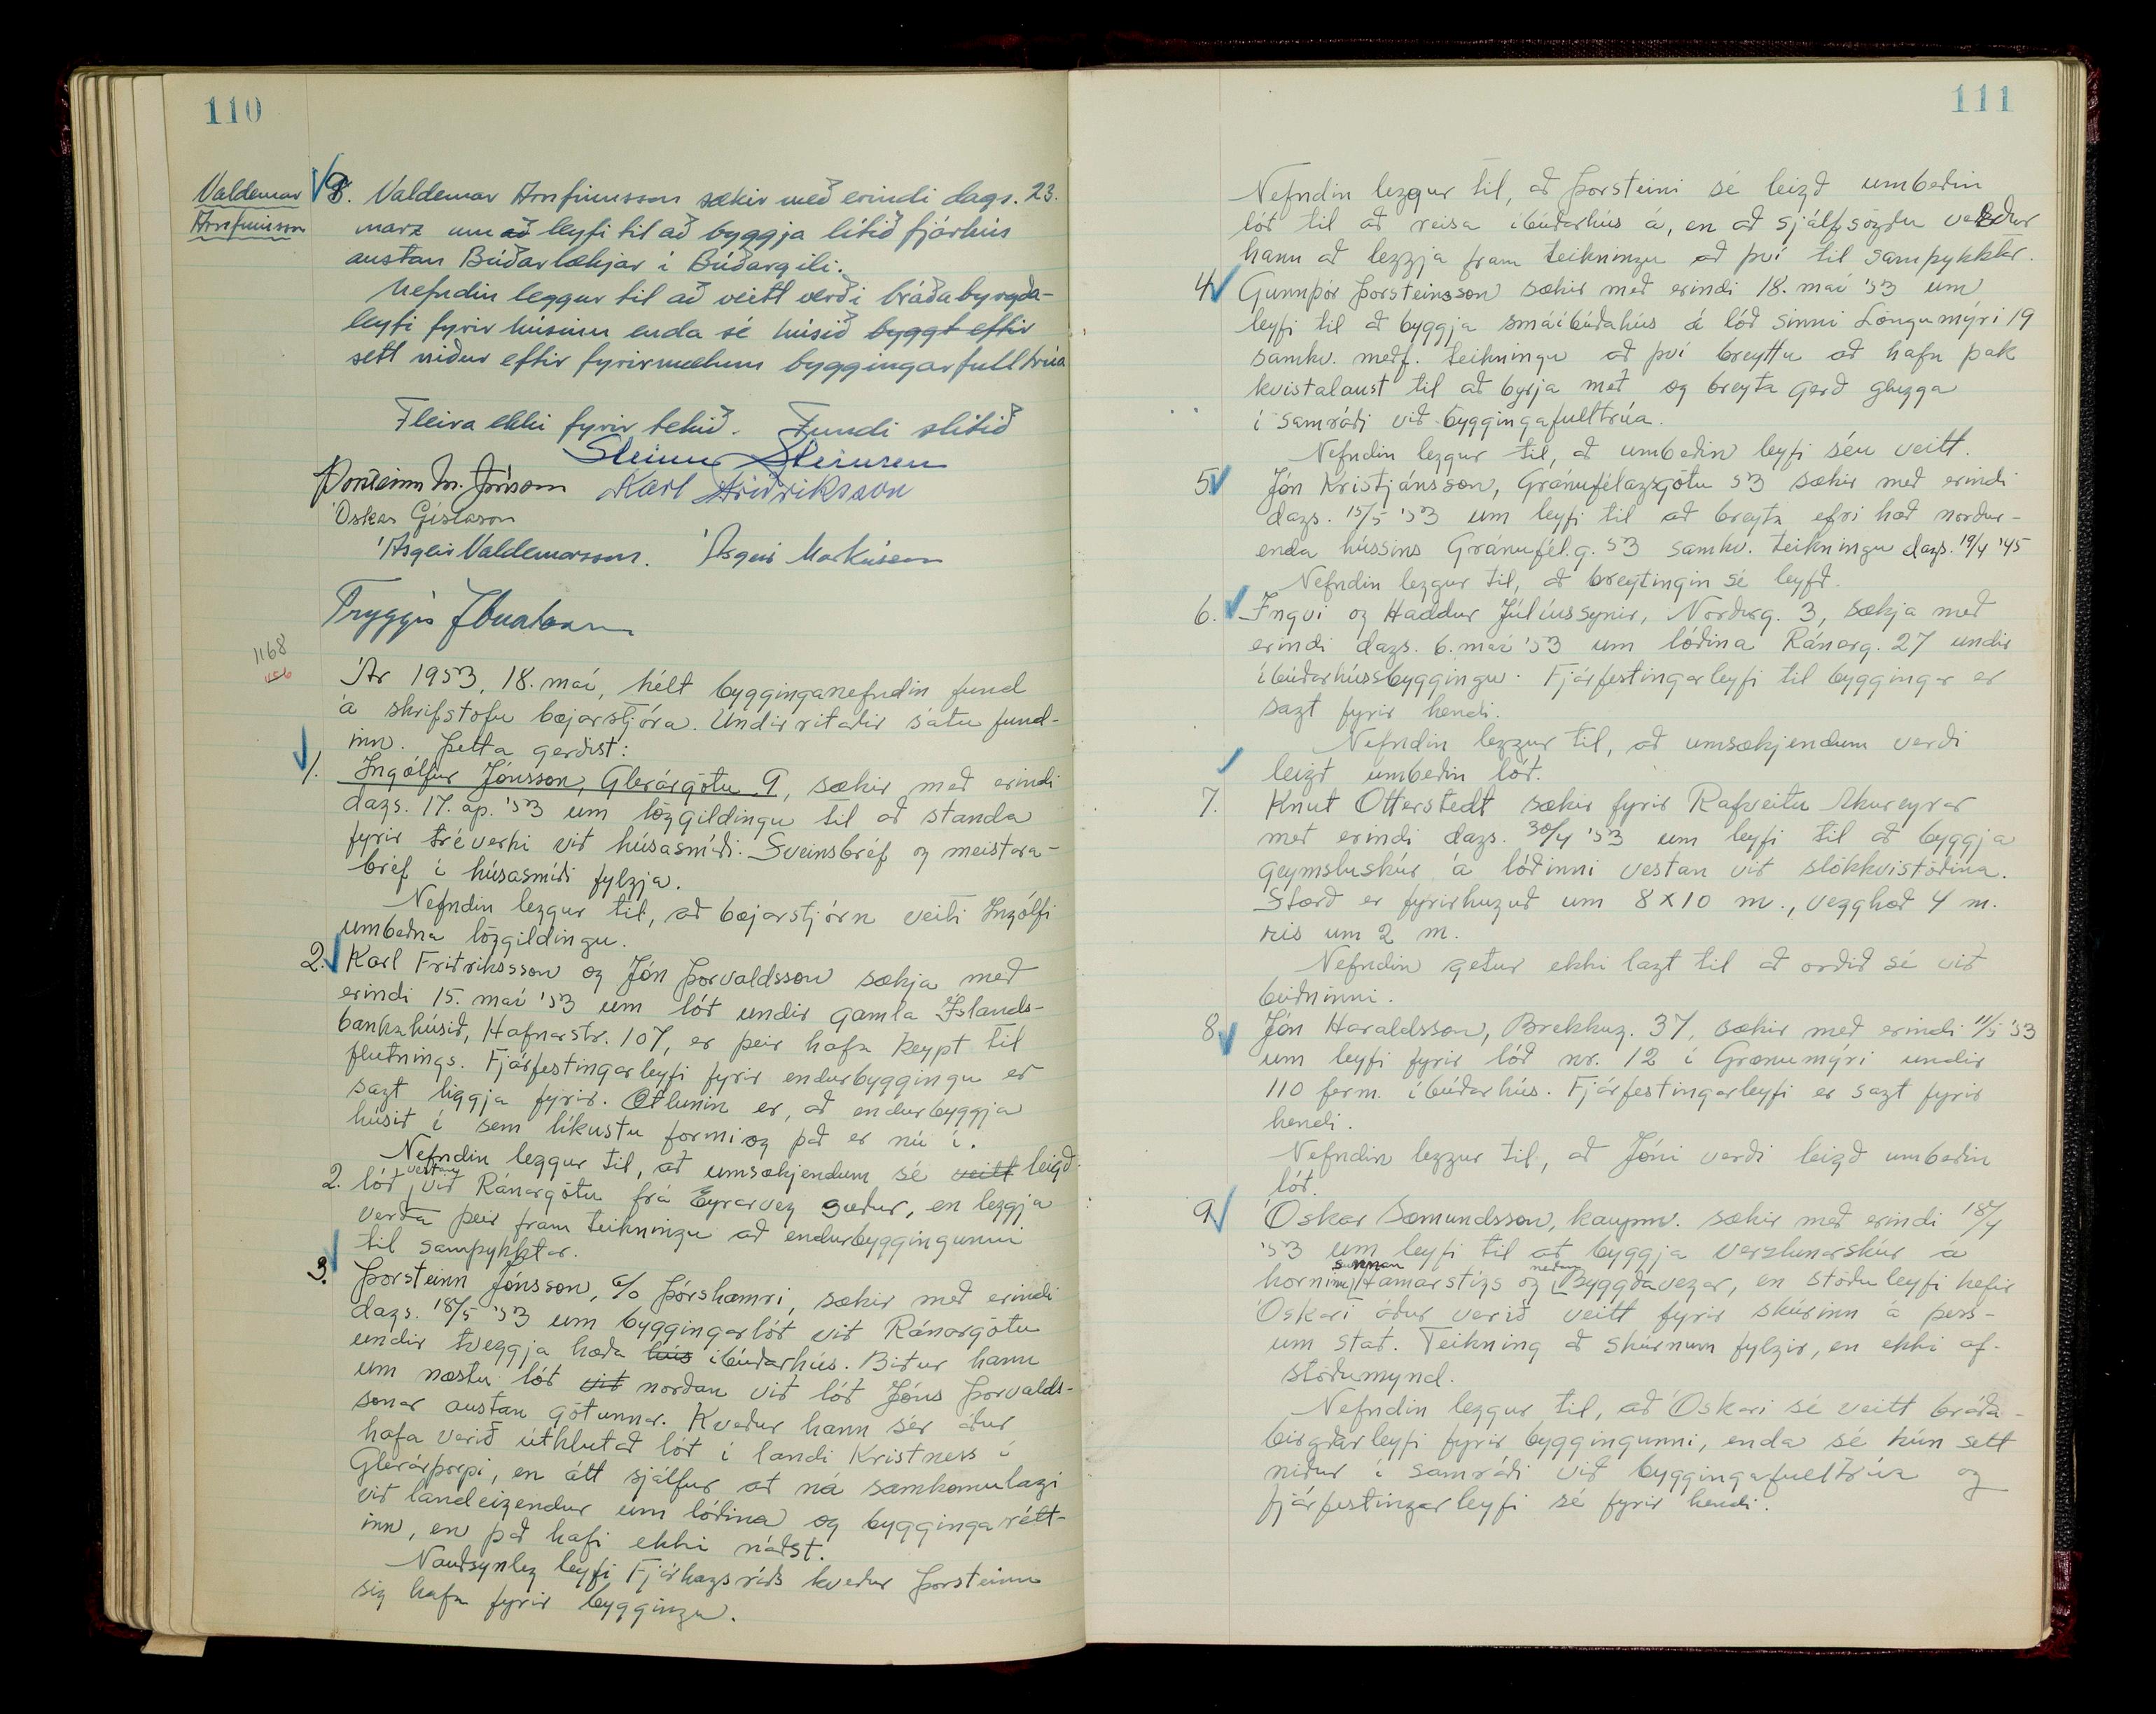 110
Valdemar
Arnfinnsson
8. Valdemar Arnfinnsson sækir með erindi dags. 23.
marz um að leyfi til að byggja lítið fjárhús
austan Búðarlækjar í Búðargili.
Nefndin leggur til að veitt verði bráðabyrgða-
leyfi fyrir húsinu enda sé húsið byggt eftir
sett niður eftir fyrirmælum byggingarfulltrúa
Fleira ekki fyrir tekið. Fundi slitið
Steinn Steinsen
Þorsteinn M. Jónsson Karl Friðriksson
Óskar Gíslason
Ásgeir Valdemarsson. Ásgeir Markússon
Tryggvi Jónatansson
1168
Ár 1953, 18. maí, hélt bygginganefndin fund
á skrifstofu bæjarstjóra. Undirritaðir sátu fund-
inn. Þetta gerðist:
1. Ingólfur Jónsson, Glerárgötu 9, sækir með erindi
dags. 17. ap. '53 um löggildingu til að standa
fyrir tréverki við húsasmíði. Sveinsbréf og meistara-
bréf í húsasmíði fylgja.
Nefndin leggur til, að bæjarstjórn veiti Ingólfi
umbeðna löggildingu.
2. Karl Friðriksson og Jón Þorvaldsson sækja með
erindi 15. maí '53 um lóð undir gamla Íslands-
bankahúsið, Hafnarstr. 107, er þeir hafa keypt til
flutnings. Fjárfestingarleyfi fyrir endurbyggingu er
sagt liggja fyrir. Ætlunin er, að endurbyggja
húsið í sem líkustu formi og það er nú í.
Nefndin leggur til, að umsækjendum sé veitt leigð
2. lóð vestan við Ránargötu frá Eyrarveg suður, en leggja
verða þeir fram teikningu að endurbyggingunni
til samþykktar.
3. Þorsteinn Jónsson, c/o Þórshamri, sækir með erindi
dags. 18/5 '53 um byggingarlóð við Ránargötu
undir tveggja hæða hús íbúðarhús. Biður hann
um næstu lóð við norðan við lóð Jóns Þorvalds-
sonar austan götunnar. Kveður hann sér áður
hafa verið úthlutað lóð í landi Kristness í
Glerárþorpi, en átt sjálfur að ná samkomulagi
við landeigendur um lóðina og byggingarétt-
inn, en það hafi ekki náðst.
Nauðsynleg leyfi Fjárhagsráðs kveður Þorsteinn
sig hafa fyrir byggingu.
111
Nefndin leggur til, að Þorsteini sé leigð umbeðin
lóð til að reisa íbúðarhús á, en að sjálfsögðu verður
hann að leggja fram teikningu að því til samþykktar.
4. Gunnþór Þorsteinsson sækir með erindi 18. maí '53 um
leyfi til að byggja smáíbúðahús á lóð sinni Löngumýri 19
samkv. meðf. teikningu að því breyttu að hafa þak
kvistalaust til að byrja með og breyta gerð glugga
í samráði við byggingafulltrúa.
Nefndin leggur til, að umbeðin leyfi séu veitt.
5. Jón Kristjánsson, Gránufélagsgötu 53 sækir með erindi
dags. 15/5 '53 um leyfi til að breyta efri hæð norður-
enda hússins Gránufél.g. 53 samkv. teikningu dags. 19/4 '45
Nefndin leggur til, að breytingin sé leyfð.
6. Ingvi og Haddur Júlíussynir, Norðurg. 3, sækja með
erindi dags. 6. maí '53 um lóðina Ránarg. 27 undir
íbúðarhússbyggingu. Fjárfestingarleyfi til byggingar er
sagt fyrir hendi.
Nefndin leggur til, að umsækjendum verði
leigð umbeðin lóð.
7. Knut Otterstedt sækir fyrir Rafveitu Akureyrar
með erindi dags. 30/4 '53 um leyfi til að byggja
geymsluskúr á lóðinni vestan við slökkvistöðina.
Stærð er fyrirhuguð um 8 x 10 m., vegghæð 4 m.
ris um 2 m.
Nefndin getur ekki lagt til að orðið sé við
beiðninni.
8. Jón Haraldsson, Brekkug. 37, sækir með erindi 11/5 '53
um leyfi fyrir lóð nr. 12 í Grænumýri undir
110 ferm. íbúðarhús. Fjárfestingarleyfi er sagt fyrir
hendi.
Nefndin leggur til, að Jóni verði leigð umbeðin
lóð.
9. Óskar Sæmundsson, kaupm. sækir með erindi 18/4
'53 um leyfi til að byggja verzlunarskúr á
horninu sunnan Hamarstígs og neðan Byggðavegar, en stöðuleyfi hefir
Óskari áður verið veitt fyrir skúrinn á þess-
um stað. Teikning að skúrnum fylgir, en ekki af-
stöðumynd.
Nefndin leggur til, að Óskari sé veitt bráða-
birgðarleyfi fyrir byggingunni, enda sé hún sett
niður í samráði við byggingafulltrúa og
fjárfestingarleyfi sé fyrir hendi.